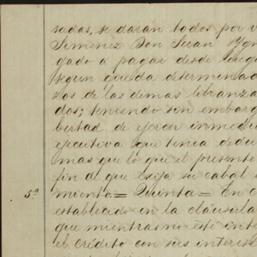 sadas, se darán todos por v
Jimenez Don Juan Ygn
gado a pagar desde luego
segun queda determinado
los de las demas libranza
das; teniendo sin embarg
bertad de ejercer inmedia
ejecutiva que tenea
mas que lo que el presente
fin de que exija su cabal
miento = Quinta = En c
5ª
establecido en la cláusula
que mientras no esté inte
el crédito con sus interes